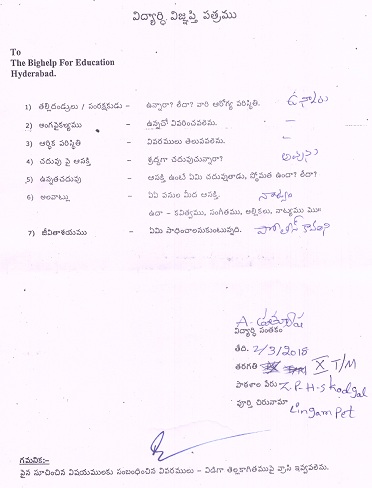 విద్యార్థి విజ్ఞప్తి పత్రము
To
The Bighelp For Education
Hyderabad.
1) తల్లిదండ్రులు / సంరక్షకుడు - ఉన్నారా? లేదా? వారి ఆరోగ్య పరిస్థితి. ఉన్నారు
2) అంగవైకల్యము - ఉన్నచో వివరించవలెను. –
3) ఆర్థిక పరిస్థితి - వివరములు తెలుపవలెను. –
4) చదువు పై ఆసక్తి - శ్రద్ధగా చదువుచున్నారా? అవును
5) ఉన్నతచదువు - ఆసక్తి ఉంటే ఏమి చదువుతాడు, స్తోమత ఉందా? లేదా?
6) అలవాట్లు - ఏఏ పనుల మీద ఆసక్తి. నాట్యం
ఉదా - కవిత్వము, సంగీతము, అల్లికలు, నాట్యము మొ॥
7) జీవితాశయము - ఏమి సాధించాలనుకుంటున్నది. పోలీస్ కావాలని
A.
విద్యార్థి సంతకం
తేది. 2/3/2018
తరగతి X T/M
పాఠశాల పేరు Z.P.H.S kadgal
పూర్తి చిరునామా Lingam Pet
గమనిక:-
పైన సూచించిన విషయములకు సంబంధించిన వివరములు - విడిగా తెల్లకాగితముపై వ్రాసి ఇవ్వవలెను.